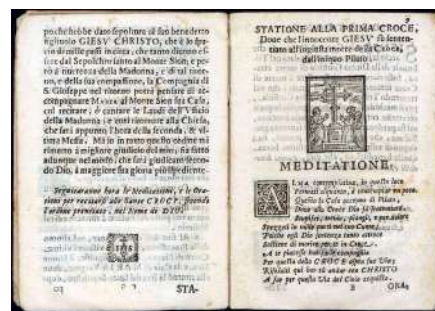 poche hebbe dato sepoltura al suo benedetto
figliuolo GIESV' CHRISTO, che è lo spa-
tio di mille passi in circa, che tanto dicono es-
sere dal Sepolchro santo al Monte Sion, e pe-
rò à riverenza della Madonna, e di tal viag-
gio, e della sua compassione, la Compagnia di
S. Gioseppe nel ritorno potrà pensare di ac-
compagnare MARIA al Monte Sion sua Casa,
col recitare, ò cantare le Laudi dell'Vfficio
della Madonna, e così ritornare alla Chiesa,
che sarà appunto l'hora della seconda, & vl-
tima Messa. Mà in tutto questo ordine mi
rimetto à migliore giudicio del mio, sia fatto
adunque nel modo, che sarà giudicato secon-
do Dio, à maggiore sua gloria più espediente.
Seguitaranno hora le Meditationi, e le Ora-
tioni per recitarsi alle Sante CROCI, secondo
l'ordine premesso, nel Nome di DIO.
IHS
STA-
9
STATIONE ALLA PRIMA CROCE,
Doue che l'innocente GIESV' fù senten-
tiato all'ingiusta morte della Croce,
dall'iniquo Pilato.
MEDITATIONE.
ALMA contemplatiua, in questo loco
Fermati alquanto, à contemplar un poco.
Questa la Casa accenna di Pilato,
Doue alla Croce Dio fù sententiato.
Stupisci, temi, piangi, e per dolore
Spezzisi in mille parti nel tuo Cuore,
Poiche egli Dio sentenza tanto atroce
Sostiene di morire per te in Croce.
A te piacesse
Per questa della CROCE aspra sua Via;
Risolviti qui hor tù andar con CHRISTO
A far per questa Via del Cielo acquisto.
B
ORA-